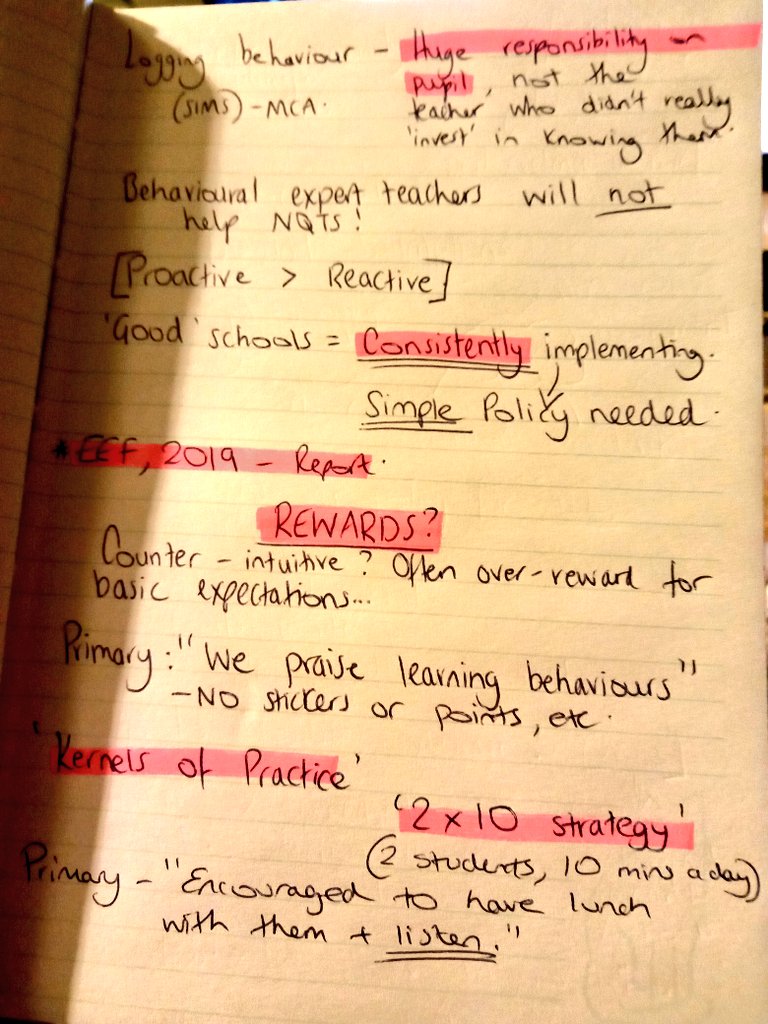 Logging behaviour - Huge responsibility on
(SIMS) - MCA. pupil, not the
teacher who didn't really
'invest' in knowing them.
Behavioural expert teachers will not
help NQTS!
[Proactive > Reactive]
'Good' schools = Consistently implementing.
Simple Policy needed.
* EEF, 2019 - Report.
REWARDS?
Counter-intuitive? Often over-reward for
basic expectations...
Primary: "We praise learning behaviours"
- NO stickers or points, etc.
'Kernels of Practice'
'2 x 10 strategy'
(2 students, 10 mins a day)
Primary - "Encouraged to have lunch
with them + listen."